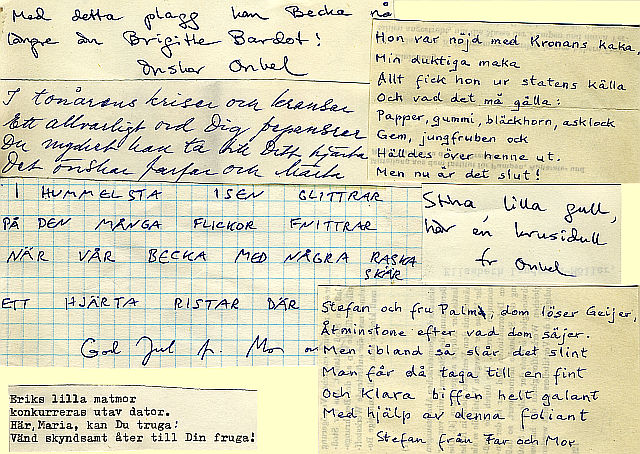 Med detta plagg kan Becka nå
längre än Brigitte Bardot!
Önskar Onkel
I tonårens kriser och kransar
Ett allvarligt ord Dig
Du mycket kan ta åt Ditt hjärta
Det önskar farfar och Märta
I HUMMELSTA ISEN GLITTRAR
PÅ DEN MÅNGA FLICKOR FNITTRAR
NÄR VÅR BECKA MED NÅGRA RASKA
SKÄR
ETT HJÄRTA RISTAR DÄR
God Jul fr. Mor
Eriks lilla matmor
konkurreras utav dator.
Här, Maria, kan Du truga!
Vänd skyndsamt åter till Din fruga!
Hon var nöjd med Kronans kaka,
Min duktiga maka
Allt fick hon ur statens källa
Och vad det må gälla:
Papper, gummi, bläckhorn, asklock
Gem, jungfruben ock
Hälldes över henne ut.
Men nu är det slut!
Stina, lilla gull,
här en krusidull
fr Onkel
Stefan och fru Palm, dom löser Geijer,
Åtminstone efter vad dom säjer.
Men ibland så slår det slint
Man får då taga till en fint
Och Klara biffen helt galant
Med hjälp av denna foliant
Stefan från Far och Mor